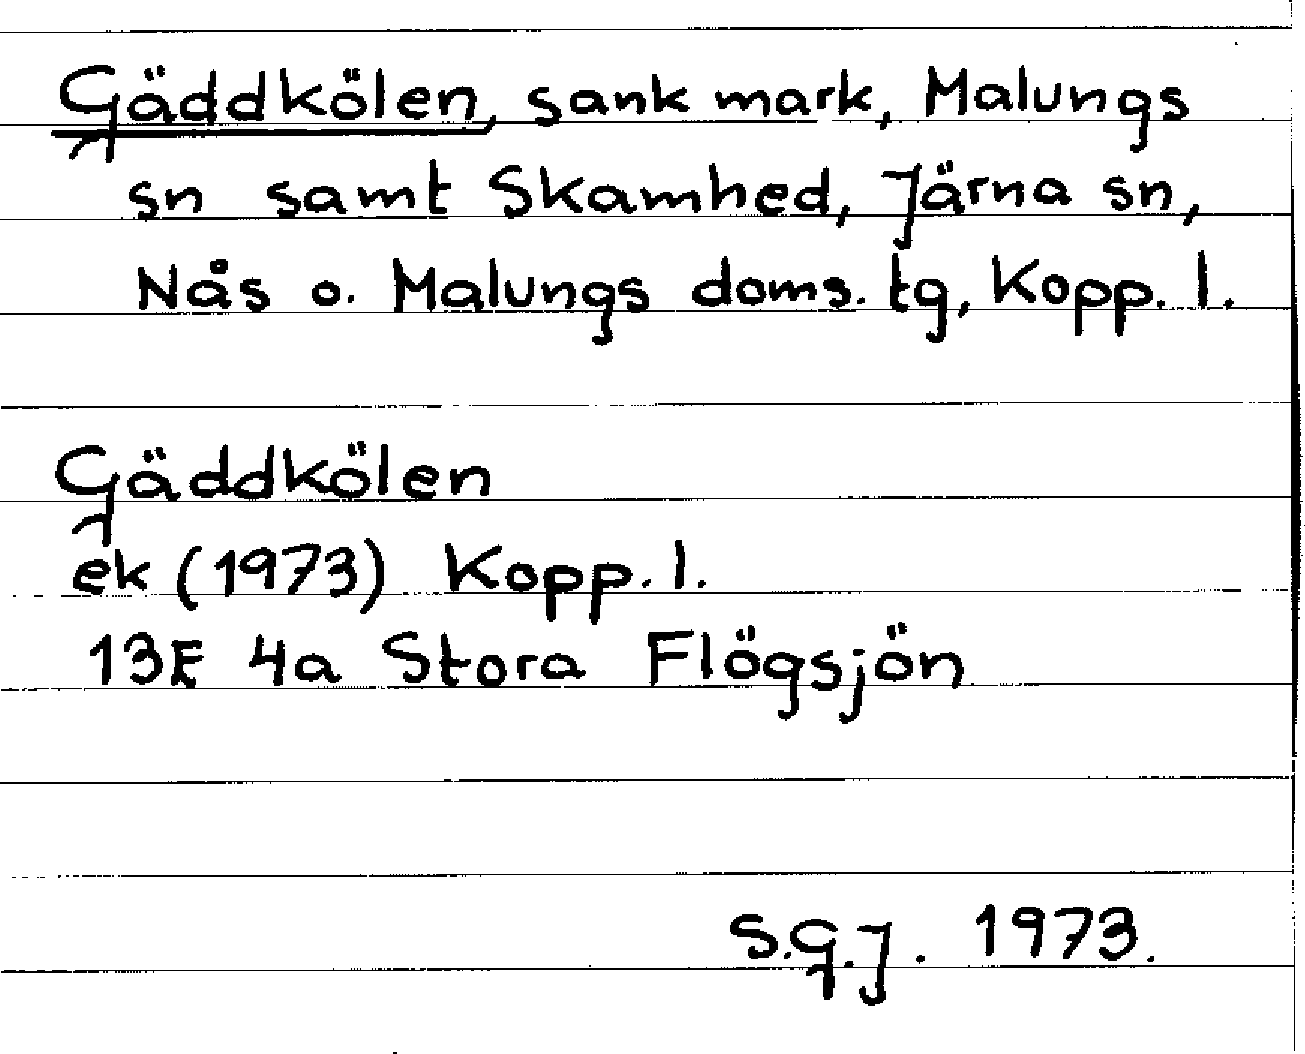 Gäddkölen, sank mark, Malungs
sn samt Skamhed, Järna sn,
Nås o. Malungs doms. tg, Kopp. l.
Gäddkölen
ek (1973) Kopp. l.
13E 4a Stora Flögsjön
S.G.J. 1973.